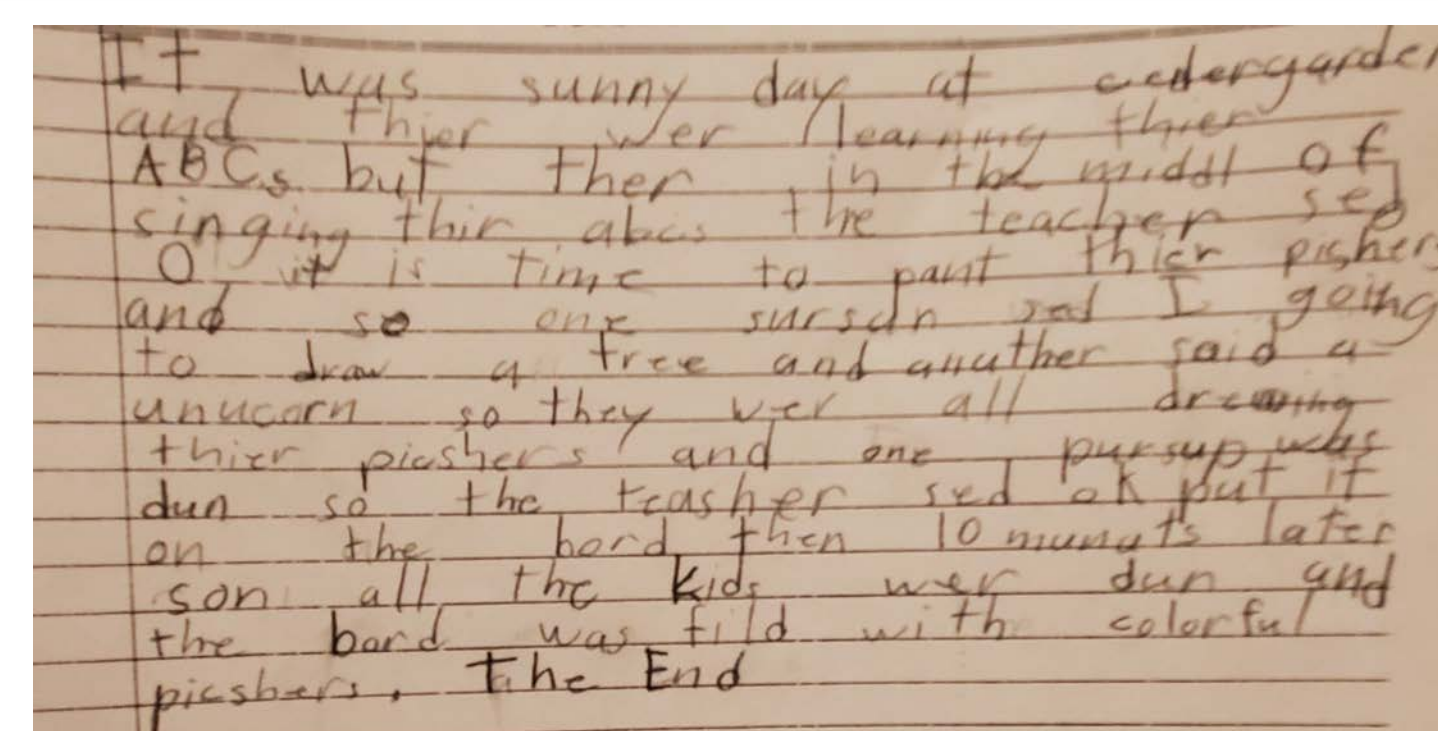 It was sunny day at cedergarden
and thier wer learning thier
ABCs but ther in the middl of
singing thir abcs the teacher sed
O it is time to pant thier pishers
and so one sursan sed I going
to draw a tree and anuther said a
unucorn so they wer all drawing
thier picshers and one pursup was
dun so the teasher sed ok put it
on the bord then 10 munats later
son all the kids wer dun and
the bord was fild with colorful
picshers. The End